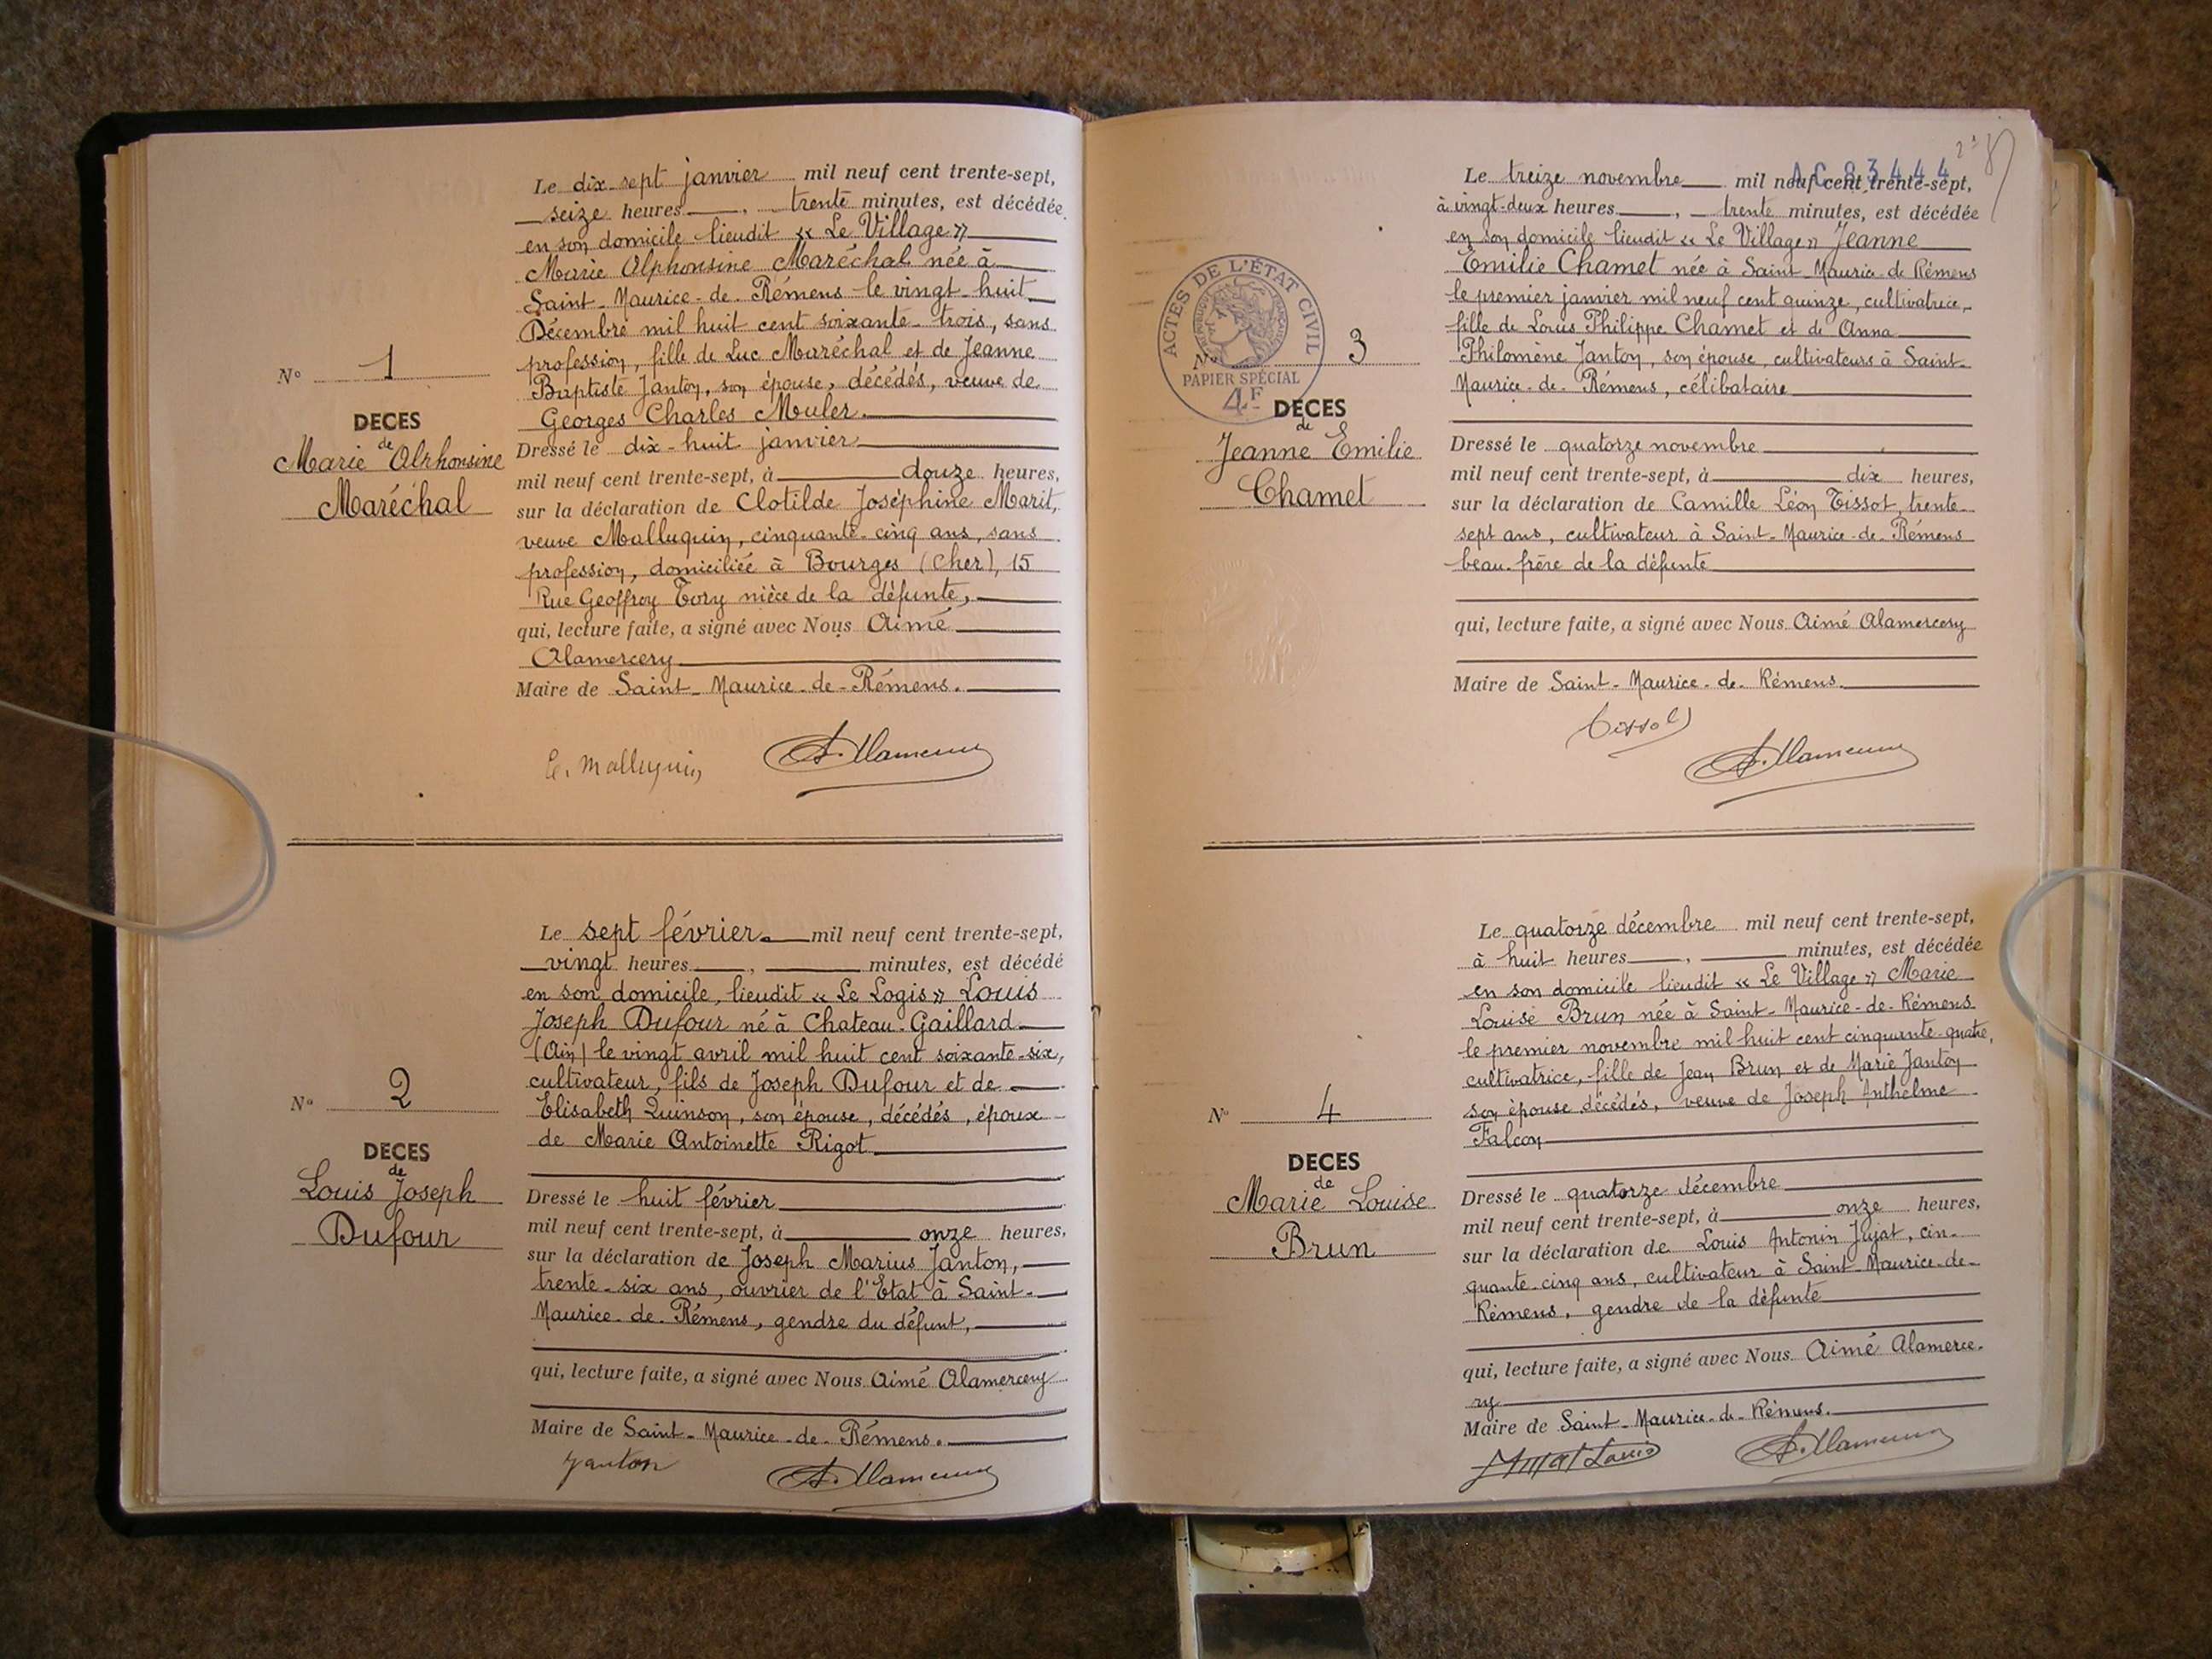 Le dix-sept janvier mil neuf cent trente-sept,
seize heures, trente minutes, est décédée
en son domicile lieudit « Le Village »
Marie Alphonsine Maréchal née à
Saint-Maurice-de-Rémens le vingt-huit
Décembre mil huit cent soixante-trois, sans
profession, fille de Luc Maréchal et de Jeanne
Baptiste Janton, son épouse, décédés, veuve de
Georges Charles Muler.
N° 1
DECES
de
Marie Alphonsine
Maréchal
Dressé le dix-huit janvier
mil neuf cent trente-sept, à douze heures,
sur la déclaration de Clotilde Joséphine Marit,
veuve Malluquin, cinquante-cinq ans, sans
profession, domiciliée à Bourges (Cher), 15
Rue Geoffroy Tory nièce de la défunte,
qui, lecture faite, a signé avec Nous Aimé
Alamercery
Maire de Saint-Maurice-de-Rémens.
Malluquin
Le sept février mil neuf cent trente-sept,
vingt heures, minutes, est décédé
en son domicile, lieudit « Le Logis » Louis
Joseph Dufour né à Chateau-Gaillard
(Ain) le vingt avril mil huit cent soixante-six,
cultivateur, fils de Joseph Dufour et de
Elisabeth Quinson, son épouse, décédés, époux
de Marie Antoinette Rigot
N° 2
DECES
de
Louis Joseph
Dufour
Dressé le huit février
mil neuf cent trente-sept, à onze heures,
sur la déclaration de Joseph Marius Janton,
trente-six ans, ouvrier de l'Etat à Saint-
Maurice-de-Rémens, gendre du défunt,
qui, lecture faite, a signé avec Nous Aimé Alamercery
Maire de Saint-Maurice-de-Rémens.
Janton
AC 83444
Le treize novembre mil neuf cent trente-sept,
à vingt-deux heures, trente minutes, est décédée
en son domicile lieudit « Le Village » Jeanne
Emilie Chamet née à Saint-Maurice-de-Rémens
le premier janvier mil neuf cent quinze, cultivatrice,
fille de Louis Philippe Chamet et de Anna
Philomène Janton, son épouse, cultivateurs à Saint-
Maurice-de-Rémens, célibataire
ACTES DE L'ÉTAT CIVIL
PAPIER SPÉCIAL
4F
N° 3
DECES
de
Jeanne Emilie
Chamet
Dressé le quatorze novembre
mil neuf cent trente-sept, à dix heures,
sur la déclaration de Camille Léon Tissot, trente-
sept ans, cultivateur à Saint-Maurice-de-Rémens
beau-frère de la défunte
qui, lecture faite, a signé avec Nous Aimé Alamercery
Maire de Saint-Maurice-de-Rémens.
Tissot
Le quatorze décembre mil neuf cent trente-sept,
à huit heures, minutes, est décédée
en son domicile lieudit « Le Village » Marie
Louise Brun née à Saint-Maurice-de-Rémens
le premier novembre mil huit cent cinquante-quatre,
cultivatrice, fille de Jean Brun et de Marie Janton
son épouse décédés, veuve de Joseph Anthelme
Falcon
N° 4
DECES
de
Marie Louise
Brun
Dressé le quatorze décembre
mil neuf cent trente-sept, à onze heures,
sur la déclaration de Louis Antonin Jujat, cin-
quante-cinq ans, cultivateur à Saint-Maurice-de-
Rémens, gendre de la défunte
qui, lecture faite, a signé avec Nous Aimé Alamerce-
ry
Maire de Saint-Maurice-de-Rémens.
Jujat Louis